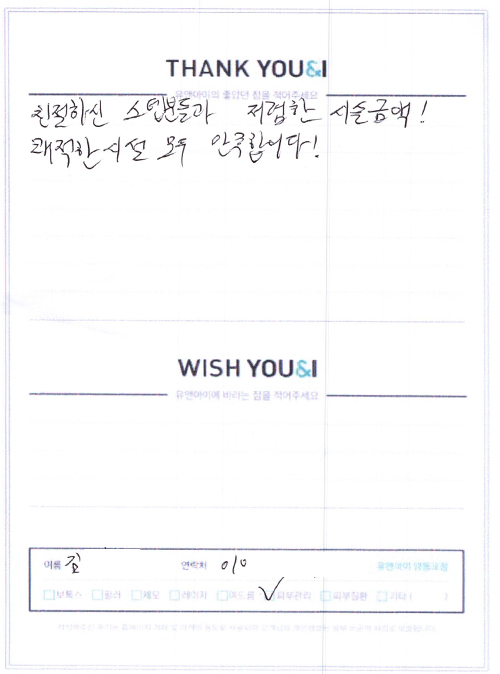 THANK YOU&I
유앤아이의 좋았던 점을 적어주세요
친절하신 스텝분들과 저렴한 시술금액!
쾌적한 시설 모두 만족합니다!
WISH YOU&I
유앤아이에 바라는 점을 적어주세요
이름 연락처 010
보톡스 필러 제모 레이저 여드름 ✓피부관리 피부질환 기타 ( )